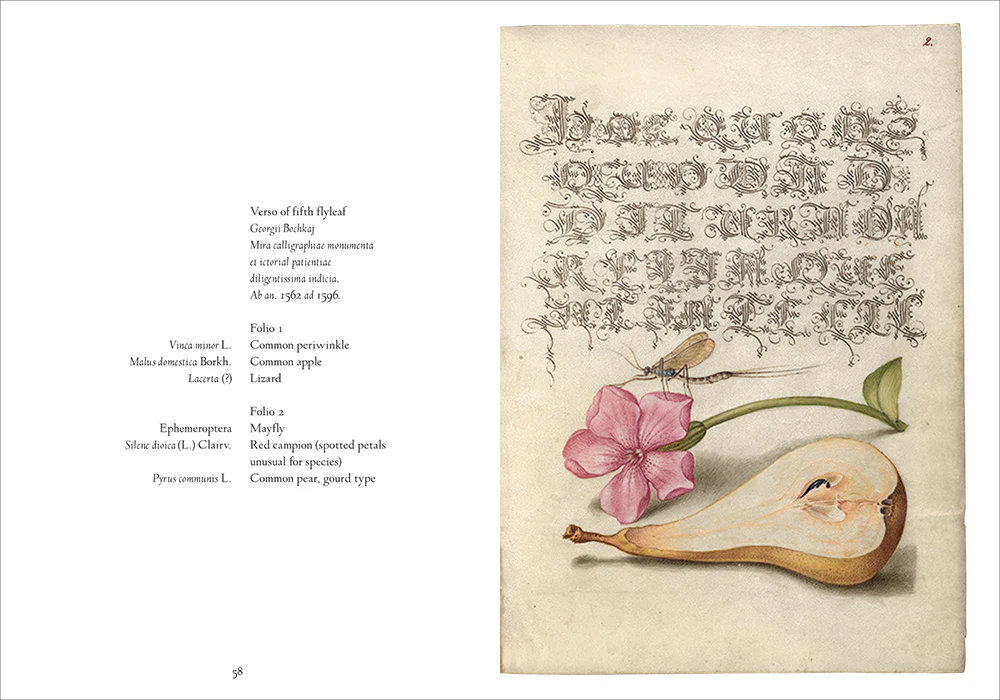 Verso of fifth flyleaf
Georgii Bochkaj
Mira calligraphiae monumenta
et ictorial patientiae
diligentissima indicia.
Ab an. 1562 ad 1596.
Folio 1
Vinca minor L. Common periwinkle
Malus domestica Borkh. Common apple
Lacerta (?) Lizard
Folio 2
Ephemeroptera Mayfly
Silene dioica (L.) Clairv. Red campion (spotted petals
unusual for species)
Pyrus communis L. Common pear, gourd type
58
2.